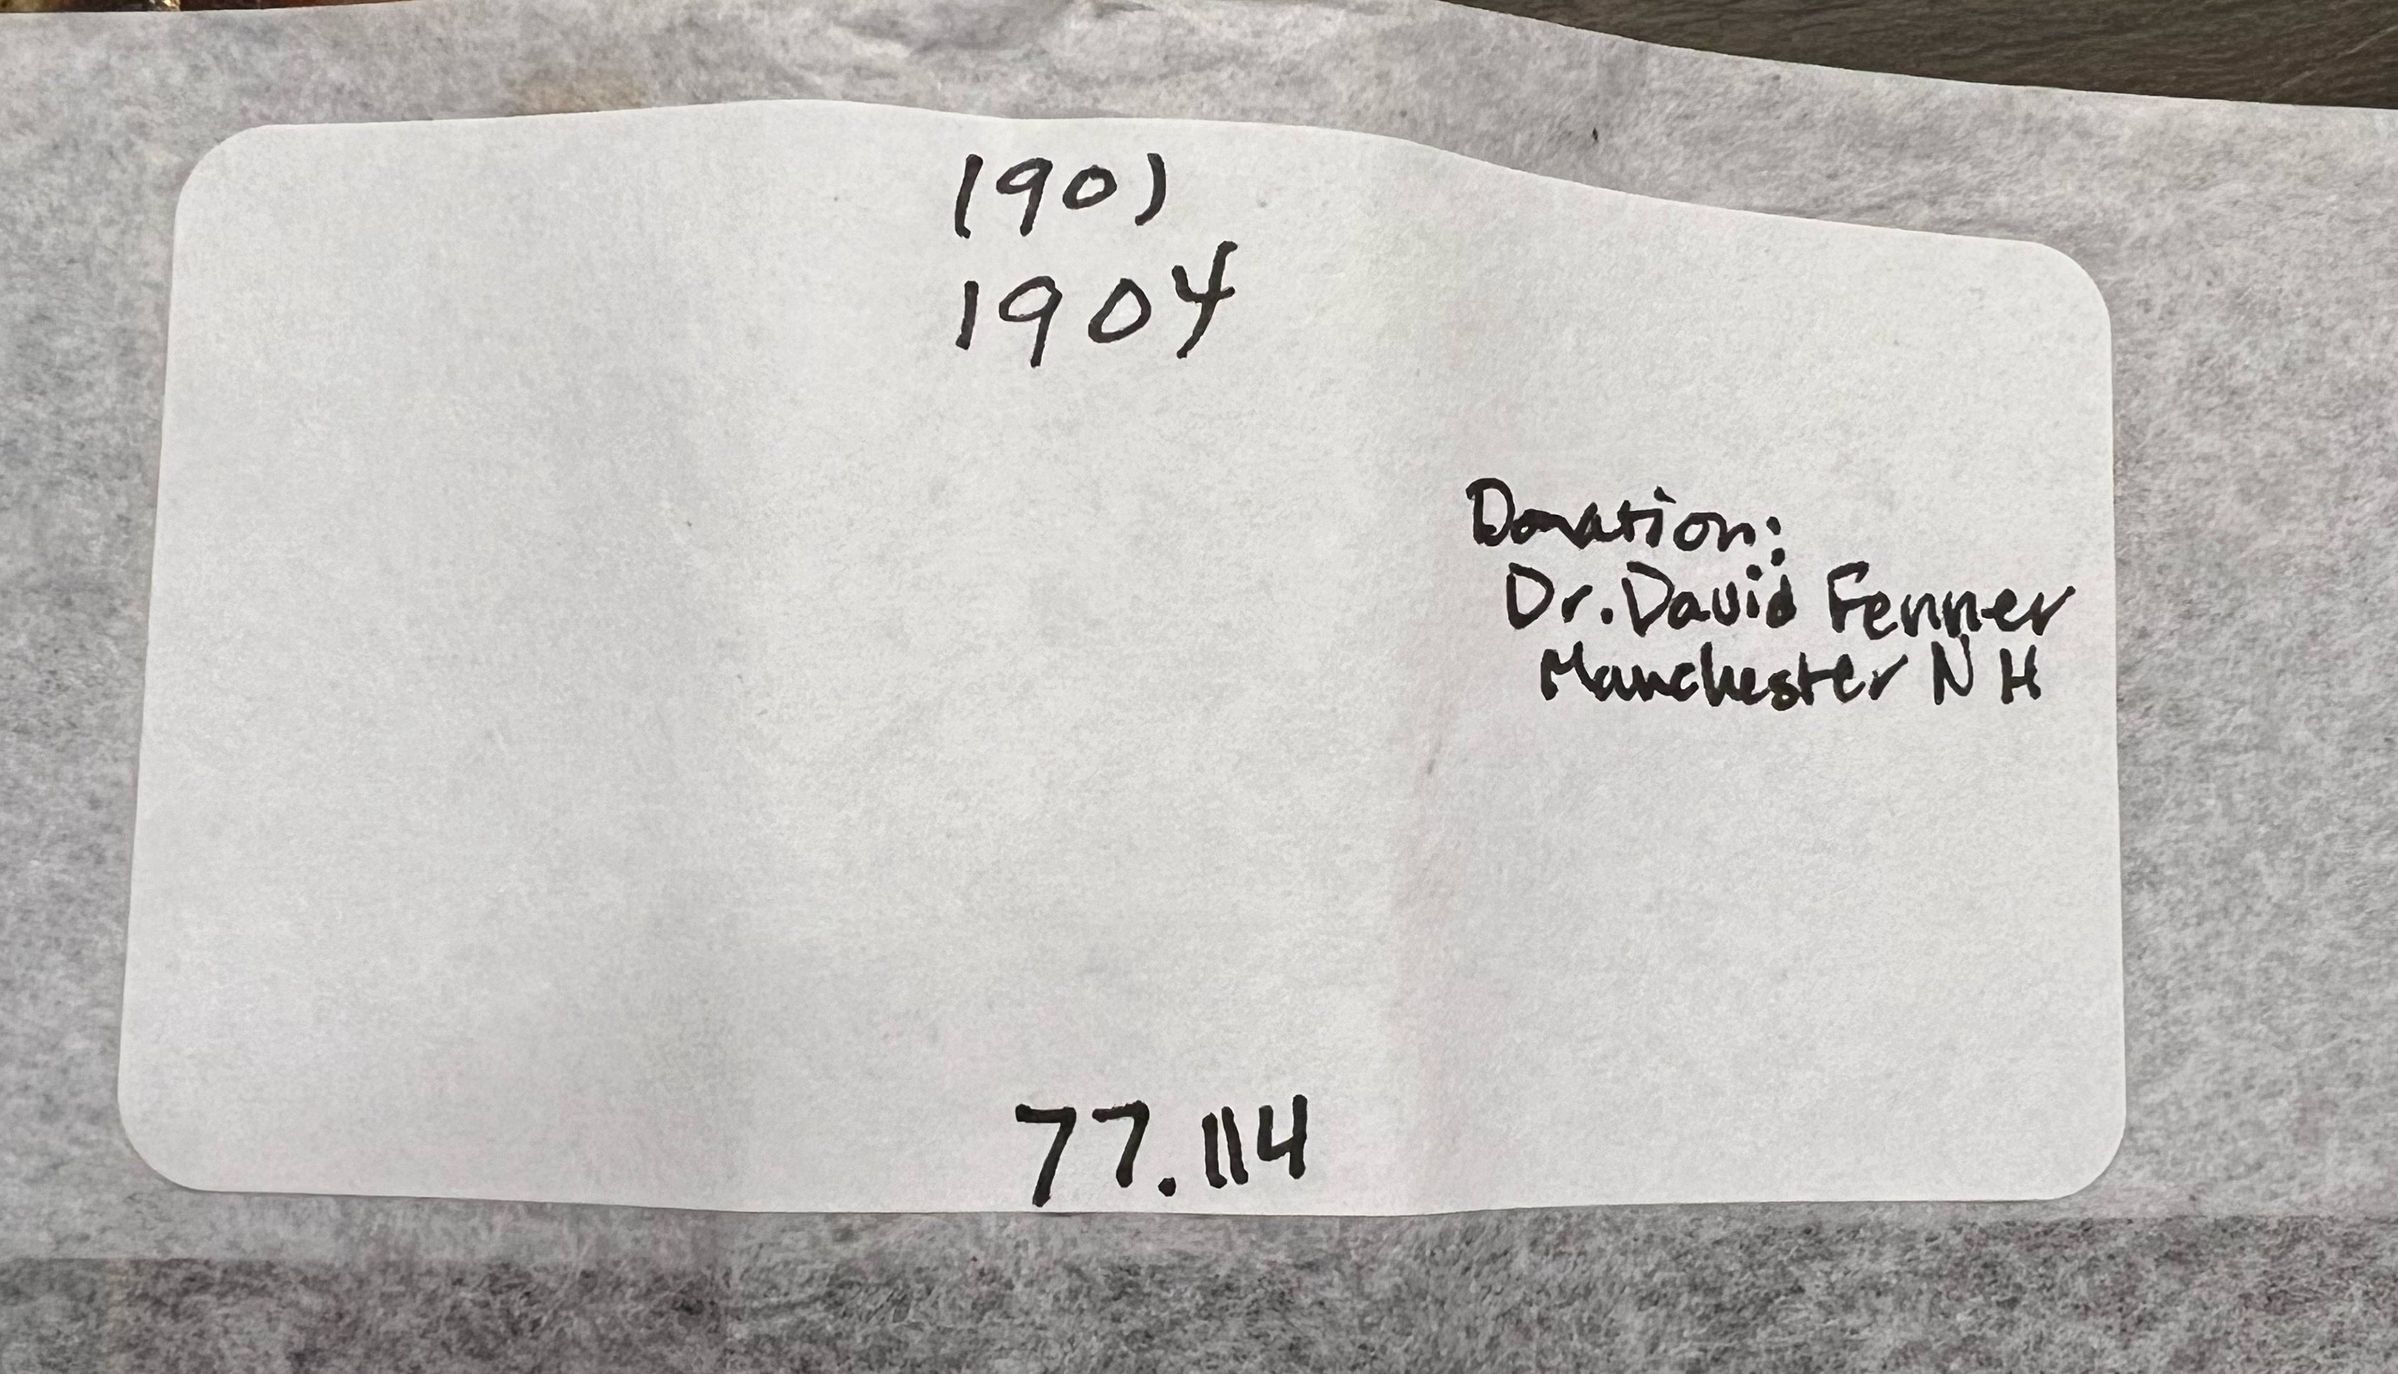 1901
1904
Donation:
Dr. David Fenner
Manchester NH
77.114